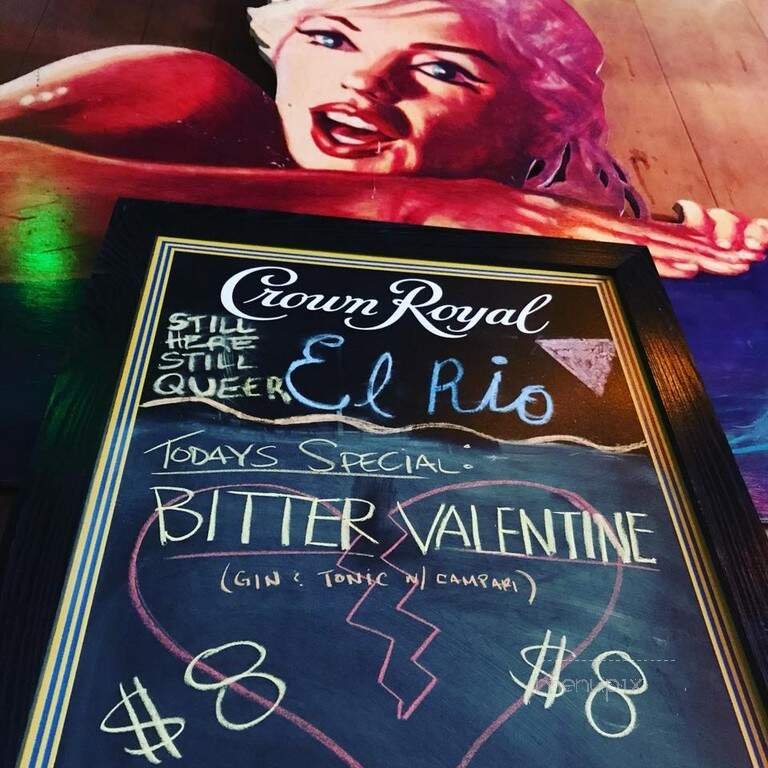 Crown Royal
STILL
HERE
STILL
QUEER
El Rio
TODAYS SPECIAL:
BITTER VALENTINE
(GIN & TONIC W/ CAMPARI)
$8 $8
menupix